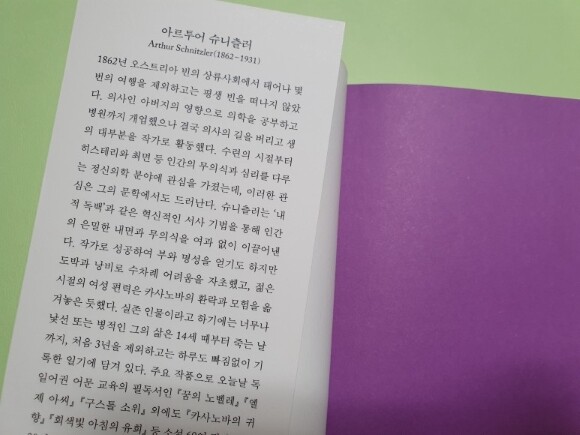 아르투어 슈니츨러
Arthur Schnitzler(1862-1931)
1862년 오스트리아 빈의 상류사회에서 태어나 몇
번의 여행을 제외하고는 평생 빈을 떠나지 않았
다. 의사인 아버지의 영향으로 의학을 공부하고
병원까지 개업했으나 결국 의사의 길을 버리고 생
의 대부분을 작가로 활동했다. 수련의 시절부터
히스테리와 최면 등 인간의 무의식과 심리를 다루
는 정신의학 분야에 관심을 가졌는데, 이러한 관
심은 그의 문학에서도 드러난다. 슈니츨러는 ‘내
적 독백’과 같은 혁신적인 서사 기법을 통해 인간
의 은밀한 내면과 무의식을 여과 없이 이끌어낸
다. 작가로 성공하여 부와 명성을 얻기도 하지만
도박과 낭비로 수차례 어려움을 자초했고, 젊은
시절의 여성 편력은 카사노바의 환락과 모험을 옮
겨놓은 듯했다. 실존 인물이라고 하기에는 너무나
낯선 또는 병적인 그의 삶은 14세 때부터 죽는 날
까지, 처음 3년을 제외하고는 하루도 빠짐없이 기
록한 일기에 담겨 있다. 주요 작품으로 오늘날 독
일어권 어문 교육의 필독서인 『꿈의 노벨레』 『엘
제 아씨』 『구스틀 소위』 외에도 『카사노바의 귀
향』 『회색빛 아침의 유희』 등 소설